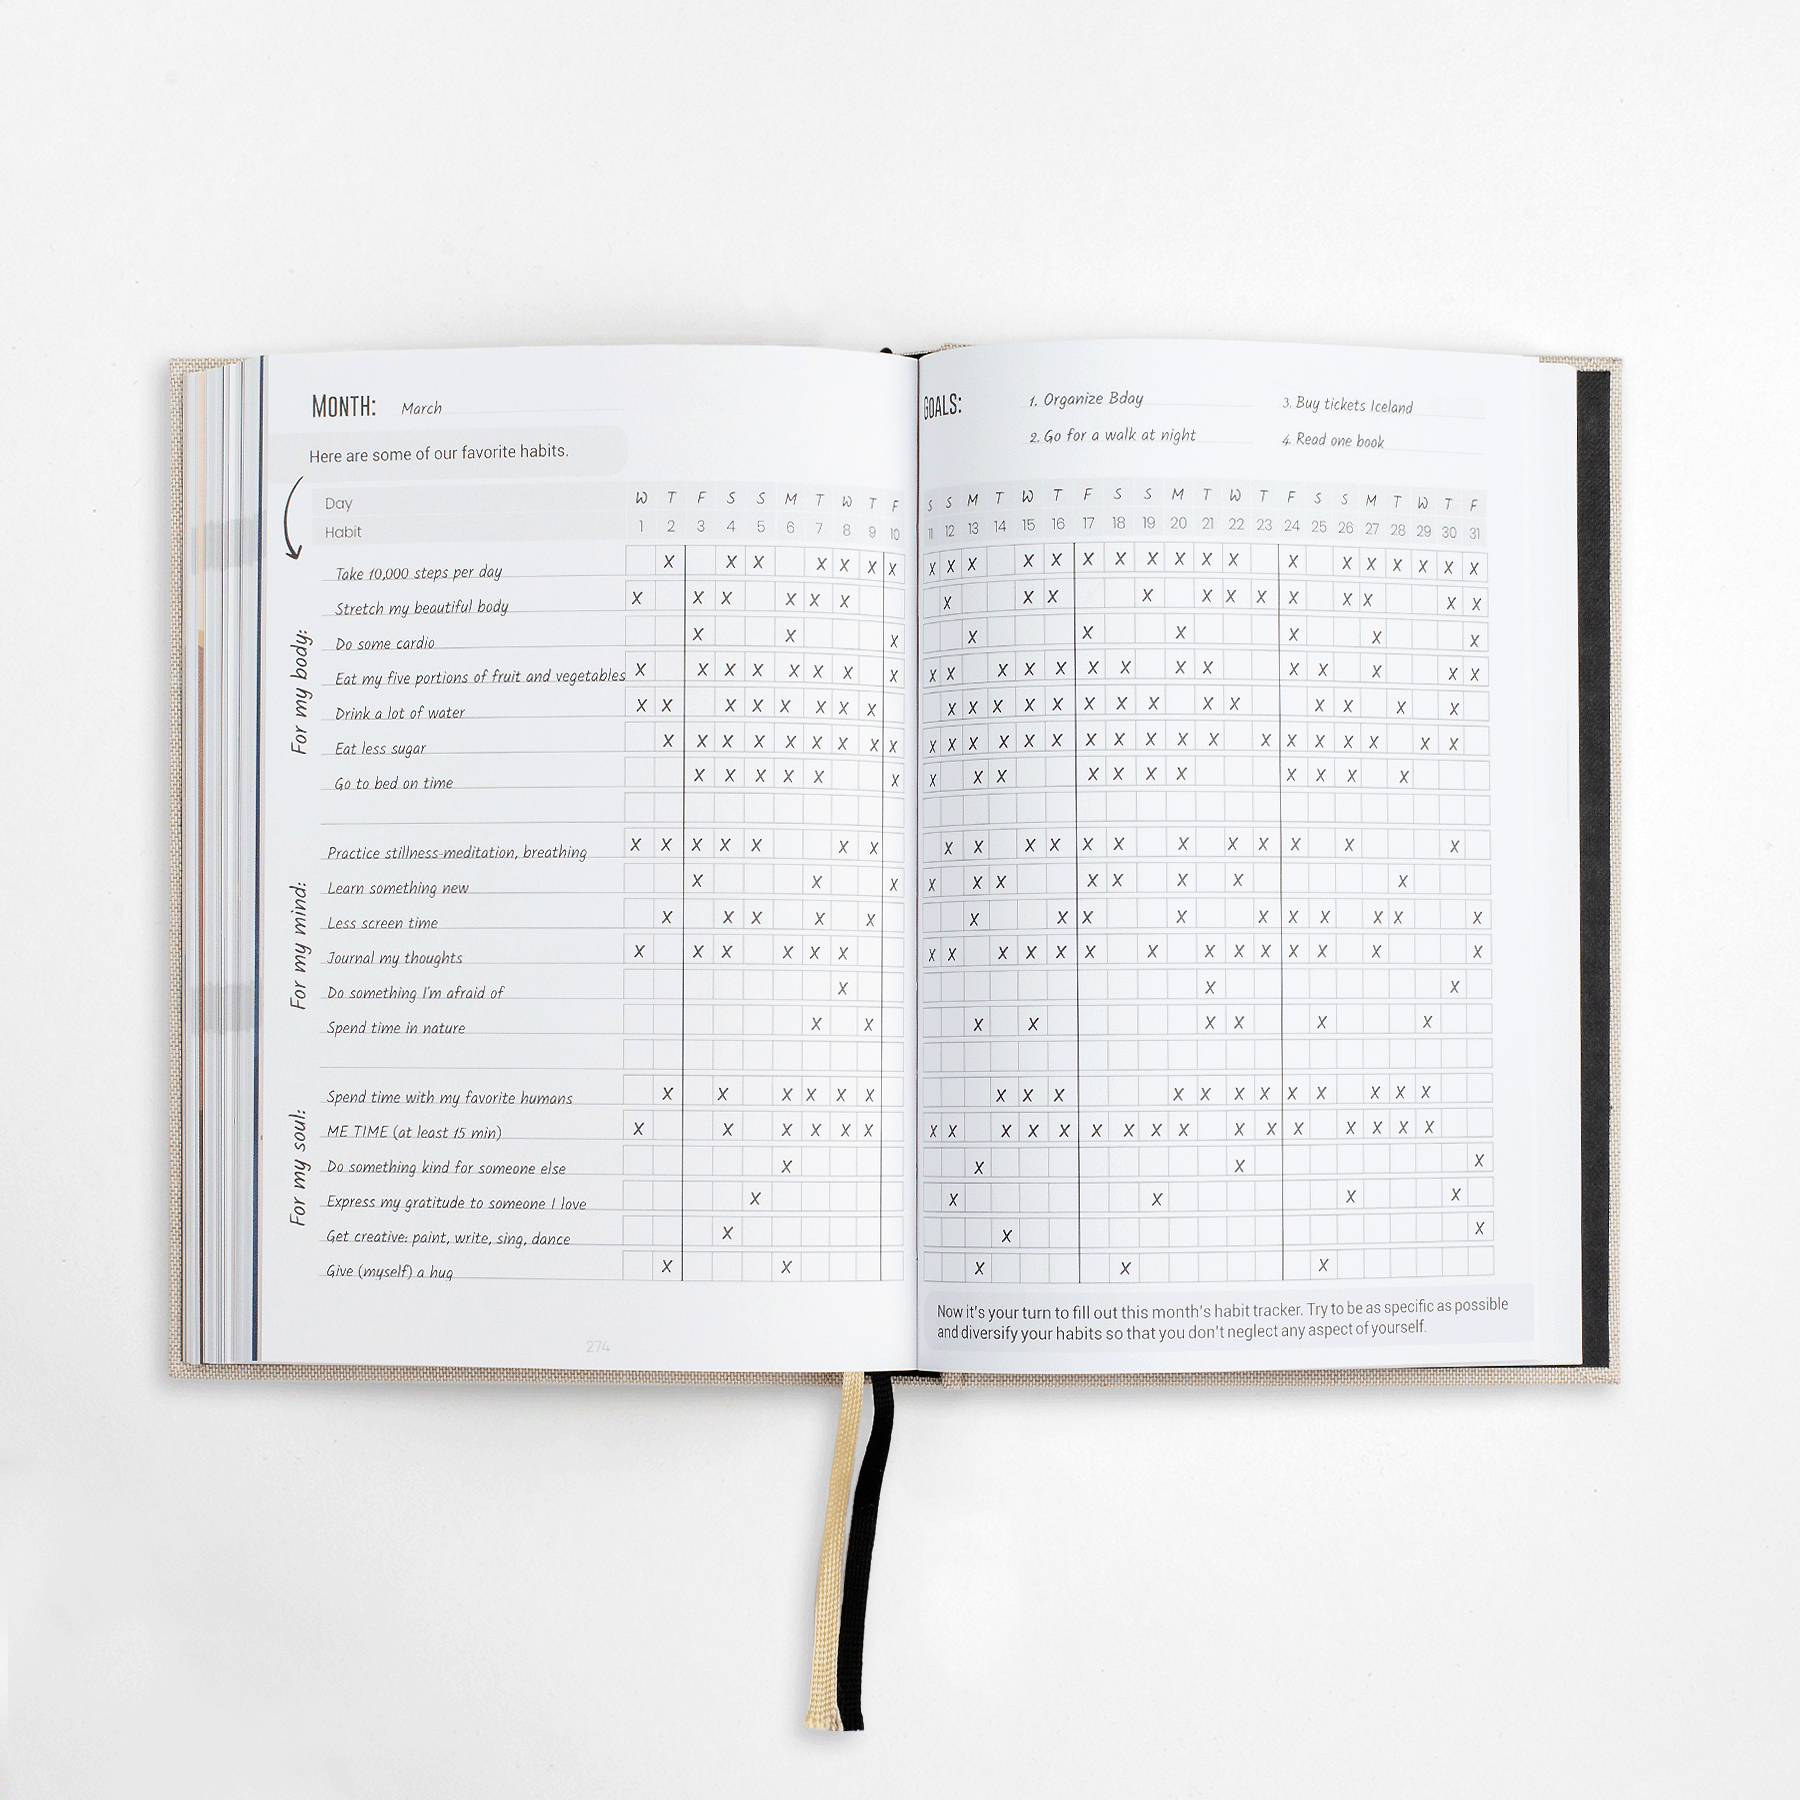 MONTH: March
Here are some of our favorite habits.
Day W T F S S M T W T F
Habit 1 2 3 4 5 6 7 8 9 10
For my body:
Take 10,000 steps per day X X X X X X X
Stretch my beautiful body X X X X X X
Do some cardio X X X
Eat my five portions of fruit and vegetables X X X X X X X X
Drink a lot of water X X X X X X X X
Eat less sugar X X X X X X X X X
Go to bed on time X X X X X X
For my mind:
Practice stillness-meditation, breathing X X X X X X X
Learn something new X X X
Less screen time X X X X X
Journal my thoughts X X X X X X
Do something I'm afraid of X
Spend time in nature X X
For my soul:
Spend time with my favorite humans X X X X X X
ME TIME (at least 15 min) X X X X X X
Do something kind for someone else X
Express my gratitude to someone I love X
Get creative: paint, write, sing, dance X
Give (myself) a hug X X
274
GOALS: 1. Organize Bday 3. Buy tickets Iceland
2. Go for a walk at night 4. Read one book
S S M T W T F S S M T W T F S S M T W T F
11 12 13 14 15 16 17 18 19 20 21 22 23 24 25 26 27 28 29 30 31
X X X X X X X X X X X X X X X X X X
X X X X X X X X X X X X
X X X X X X
X X X X X X X X X X X X X X
X X X X X X X X X X X X X X
X X X X X X X X X X X X X X X X X X
X X X X X X X X X X X
X X X X X X X X X X X X
X X X X X X X X
X X X X X X X X X X
X X X X X X X X X X X X X X
X X
X X X X X X
X X X X X X X X X X X X
X X X X X X X X X X X X X X X X
X X X
X X X X
X X
X X X
Now it's your turn to fill out this month's habit tracker. Try to be as specific as possible
and diversify your habits so that you don't neglect any aspect of yourself.